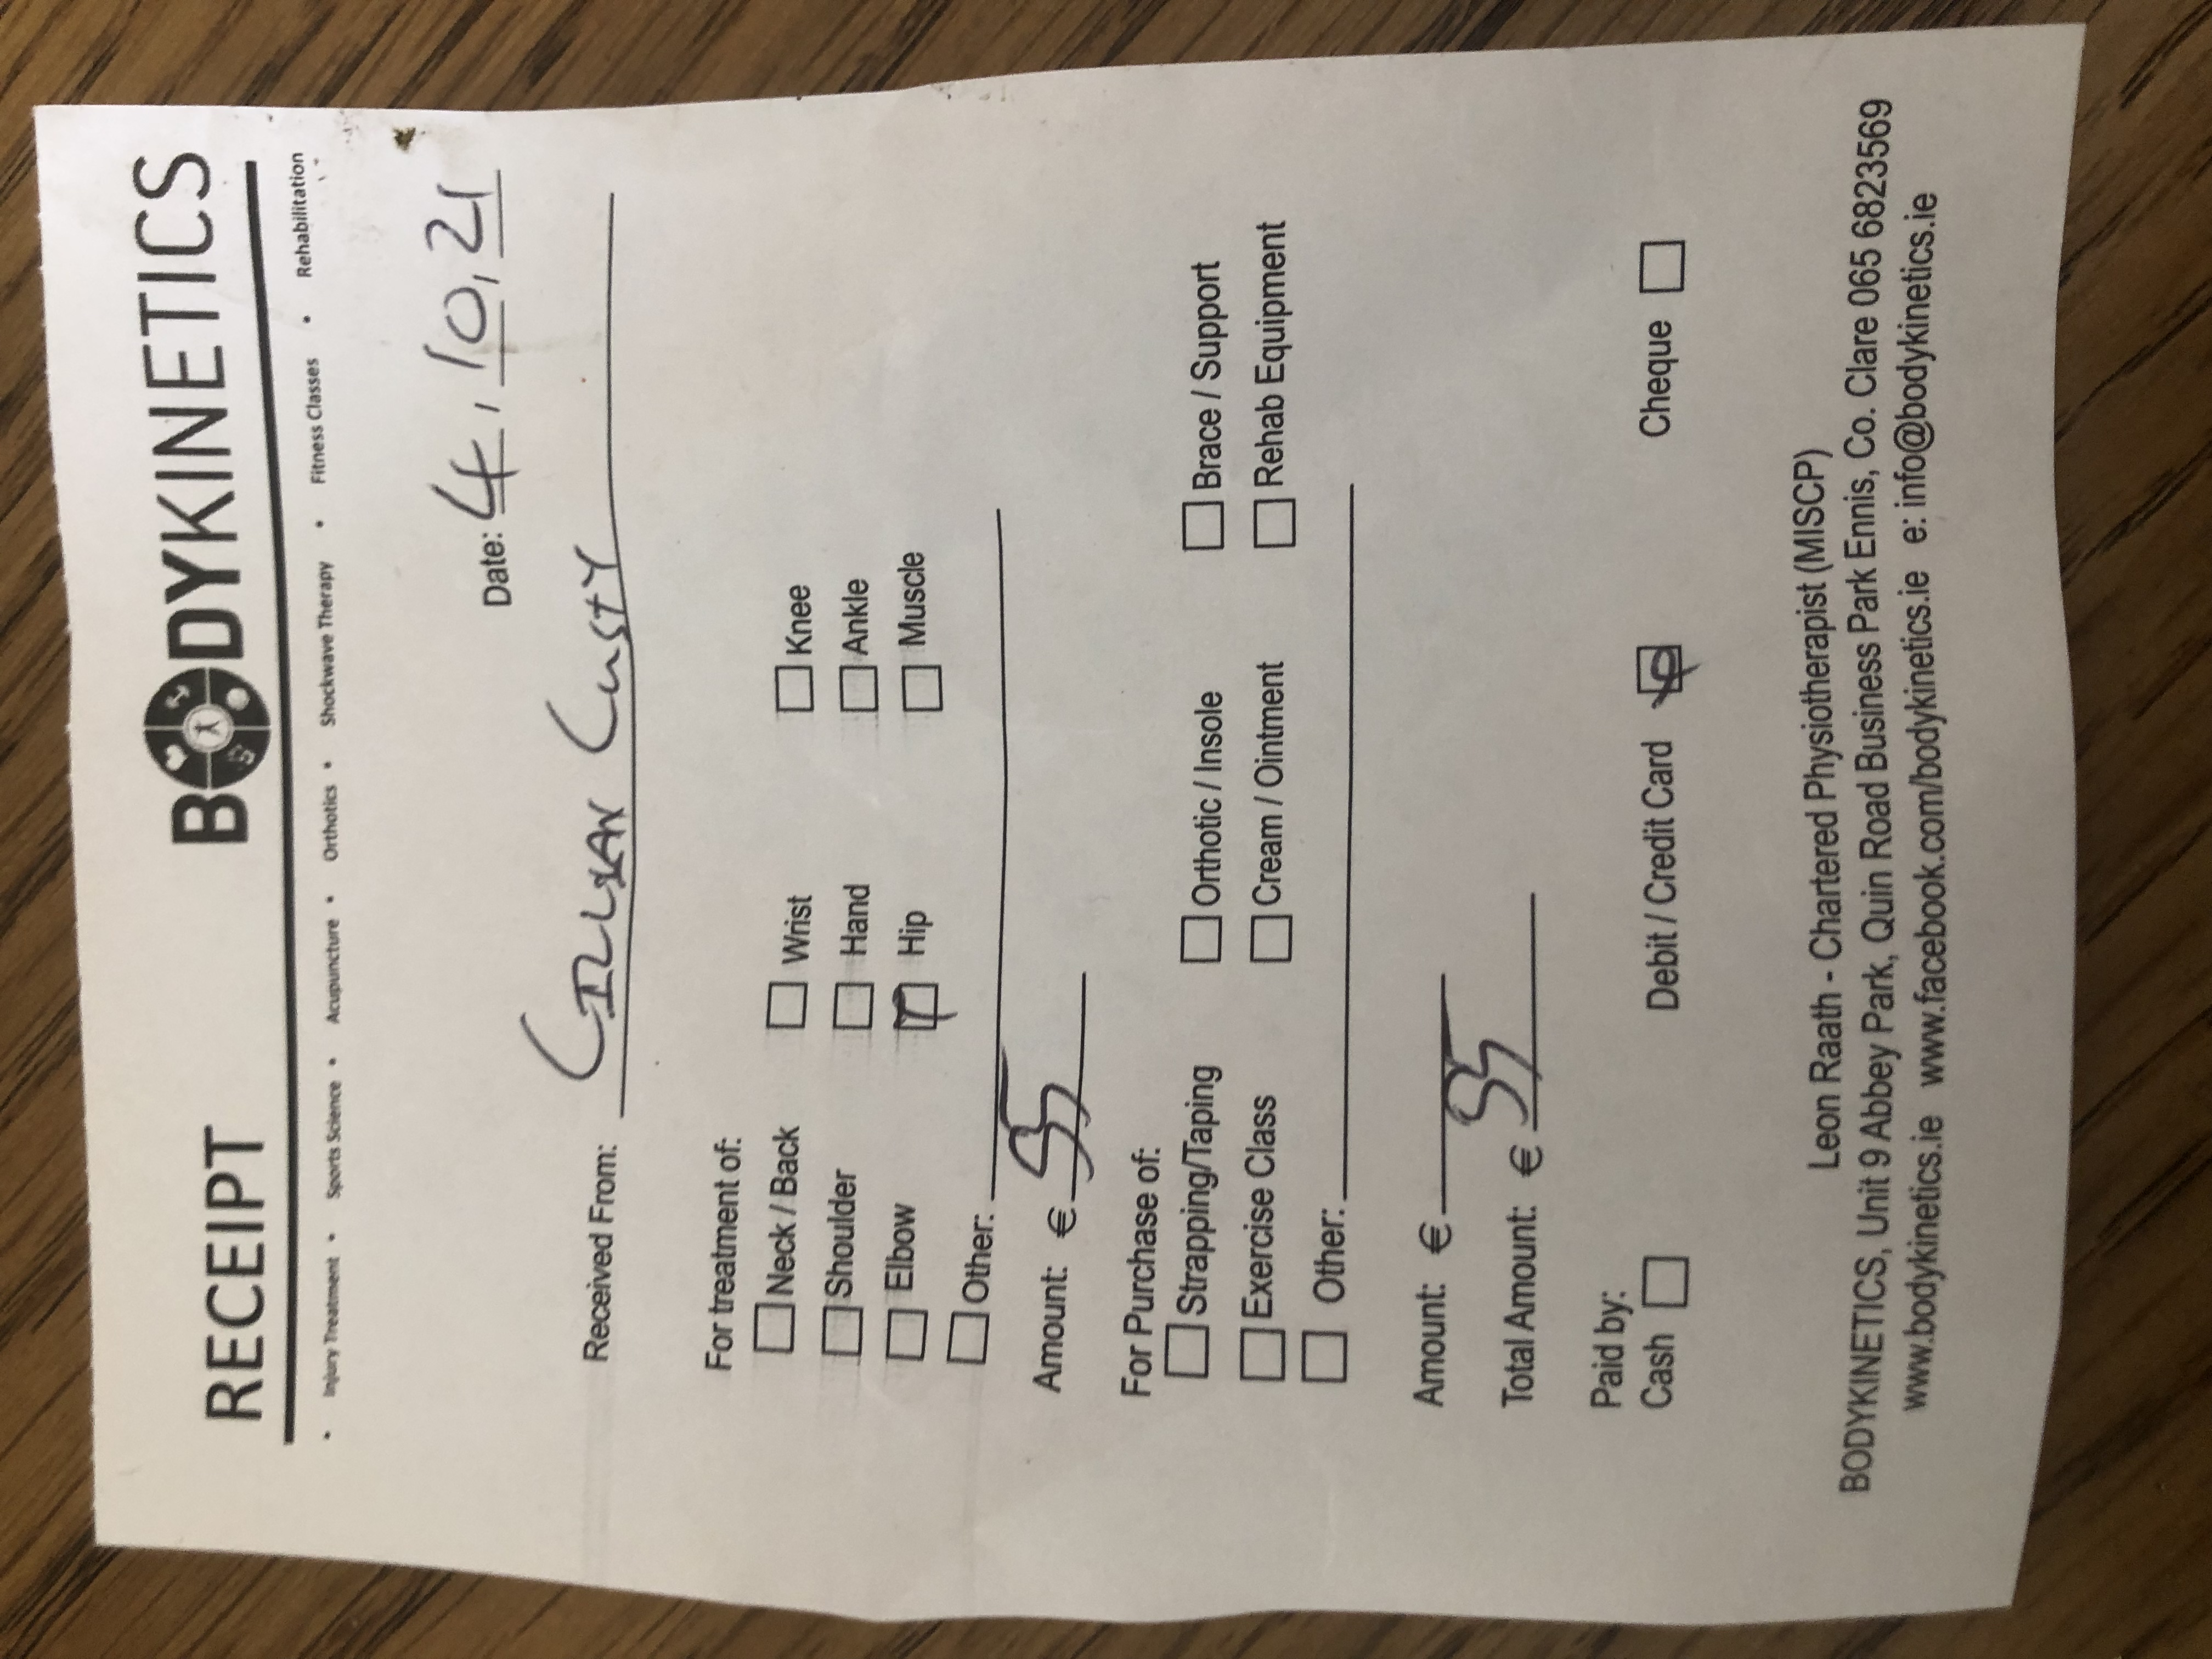 RECEIPT BODYKINETICS
• Injury Treatment • Sports Science • Acupuncture • Orthotics • Shockwave Therapy • Fitness Classes • Rehabilitation
Date: 4, 10, 21
Received From: CILLIAN Custy
For treatment of:
Neck / Back Wrist Knee
Shoulder Hand Ankle
Elbow Hip Muscle
Other:
Amount: € 55
For Purchase of:
Strapping/Taping Orthotic / Insole Brace / Support
Exercise Class Cream / Ointment Rehab Equipment
Other:
Amount: €
Total Amount: € 55
Paid by:
Cash Debit / Credit Card Cheque
Leon Raath - Chartered Physiotherapist (MISCP)
BODYKINETICS, Unit 9 Abbey Park, Quin Road Business Park Ennis, Co. Clare 065 6823569
www.bodykinetics.ie www.facebook.com/bodykinetics.ie e: info@bodykinetics.ie